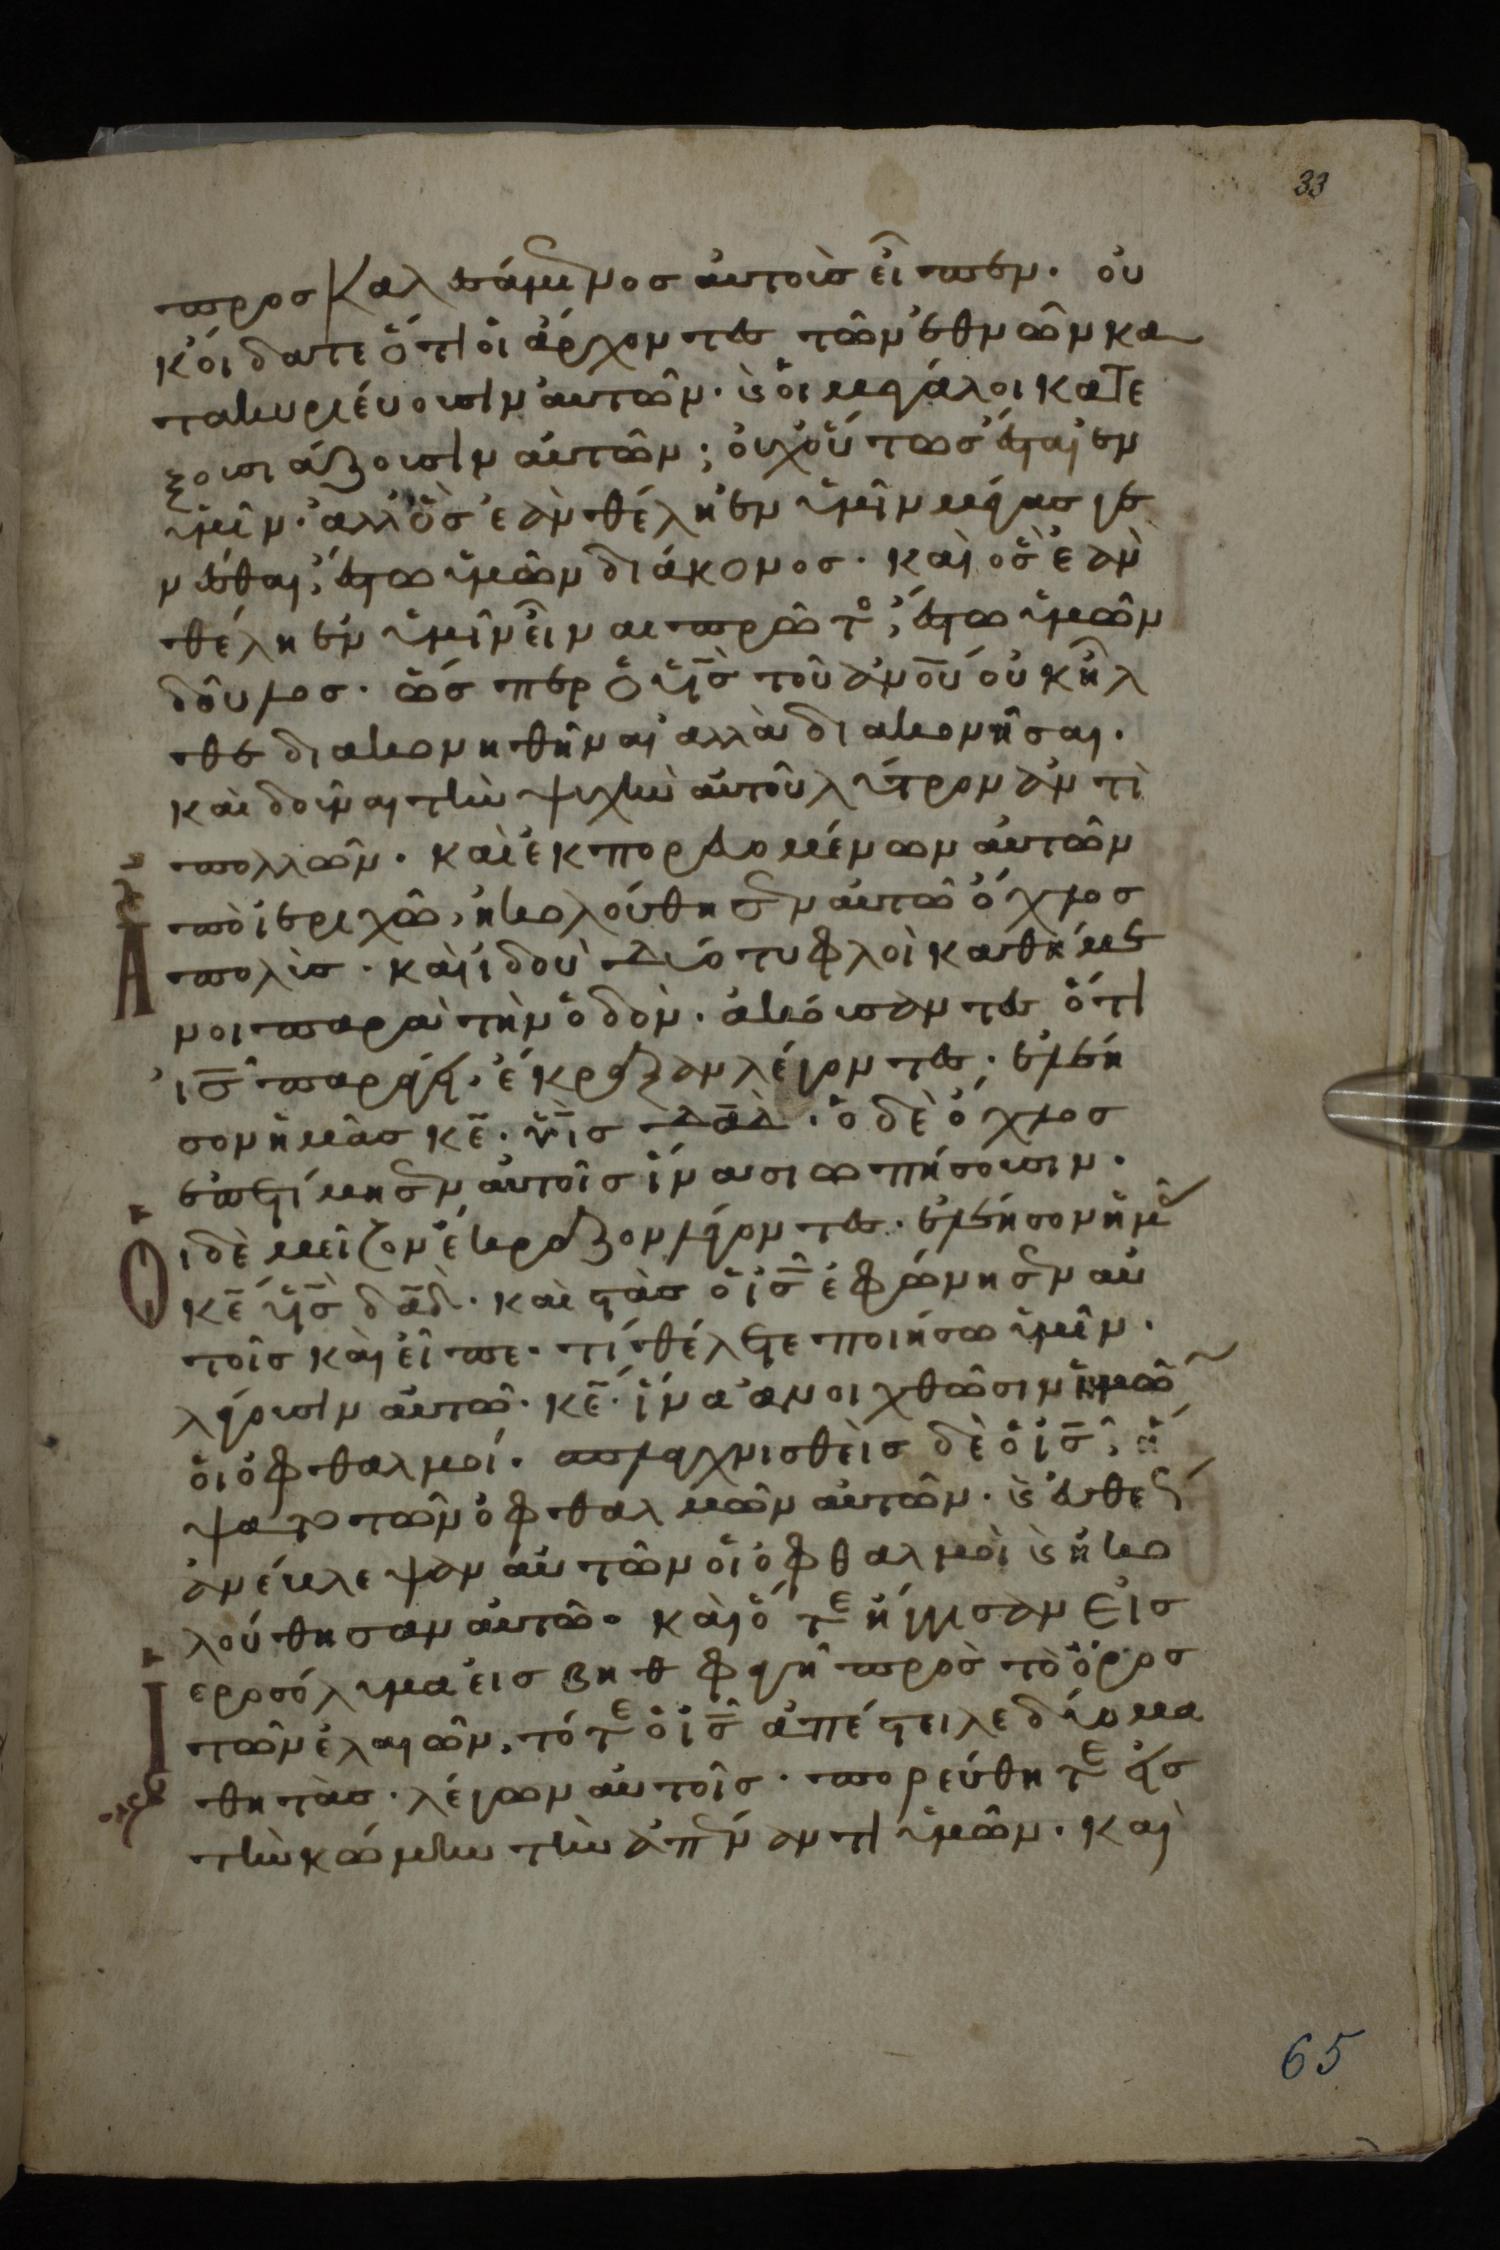 33
προσκαλεσάμενος αὐτοὺσ εἶπεν· οὐ
κόιδατε ὅτι οἱ ἄρχοντες τῶν ἐθνῶν κα
τακυριέυουσιν αὐτῶν· καὶ οἱ μεγάλοι κατε
ξουσιάζουσιν αὐτῶν; οὐχ οὕτωσ ἔσται ἐν
ὑμῖν· ἀλλ ὃσ ἐὰν θέλη ἐν ὑμῖν μέγασ γε
νέσθαι, ἔστω ὑμῶν διάκονοσ· καὶ οσ ἐὰν
θέλη ἐν ὑμῖν εἶναι πρῶτος, ἔστω ὑμῶν
δοῦλοσ· ὥσπερ ὁ υἱ̅σ̅ τοῦ ἀν̅ο̅υ̅ οὐκ ἦλ
θε διακονηθῆναι ἀλλὰ διακονῆσαι·
καὶ δοῦναι τὴν ψυχὴν αὐτοῦ λύτρον ἀντὶ
πολλῶν· καὶ ἐκπορευομένων αὐτῶν
ἀπὸ ἱεριχῶ, ἠκολούθησαν αὐτῶ ὄχλοσ
πολὺσ· καὶ ἰδοὺ δύο τυφλοὶ καθήμε
νοι παρὰ τὴν ὁδὸν· ἀκόυσαντες ὅτι
ἰ̅σ̅ παράγει, ἔκραζαν λέγοντες· ἐλεή
σον ἡμᾶσ κ̅ε̅· υἱ̅σ δ̅α̅δ̅· ὁ δὲ ὄχλοσ
ἐπετίμησαν αὐτοῖσ ἵνα σιωπήσουσιν·
ιδὲ μεῖζον ἔκραζον λέγοντες· ἐλεήσον ἡμᾶς
κ̅ε̅ υἱ̅σ̅ δ̅α̅δ̅· καὶ στὰσ ὁ ἰ̅σ̅ ἐφώνησεν αὐ
τοῖσ καὶ εἶπε· τί θέλετε ποιήσω ὑμῖν·
λέγουσιν αὐτῶ· κ̅ε̅· ἵνα ἀνοιχθῶσιν ἡμῶν
ὁι ὀφθαλμοί· σπλαγχνισθεὶσ δὲ ὁ ἰ̅σ̅, ἥ
ψατο τῶν ὀφθαλμῶν αὐτῶν· καὶ ἐυθέως
ἀνέβλεψαν αὐτῶν οἱ ὀφθαλμοὶ καὶ ἠκο
λούθησαν αὐτῶ· καὶ ὅτε ἤγγισαν εἰσ
ἱεροσόλυμα εἰσ βηθφαγῆ πρὸσ τὸ ὄροσ
τῶν ἐλαιῶν, τότε ὁ ἰ̅σ̅ ἀπέστειλε δύο μα
θητὰσ· λέγων αὐτοῖσ· πορεύθητε εἰσ
τὴν κώμην τὴν ἀπέναντι ὑμῶν· καὶ
65